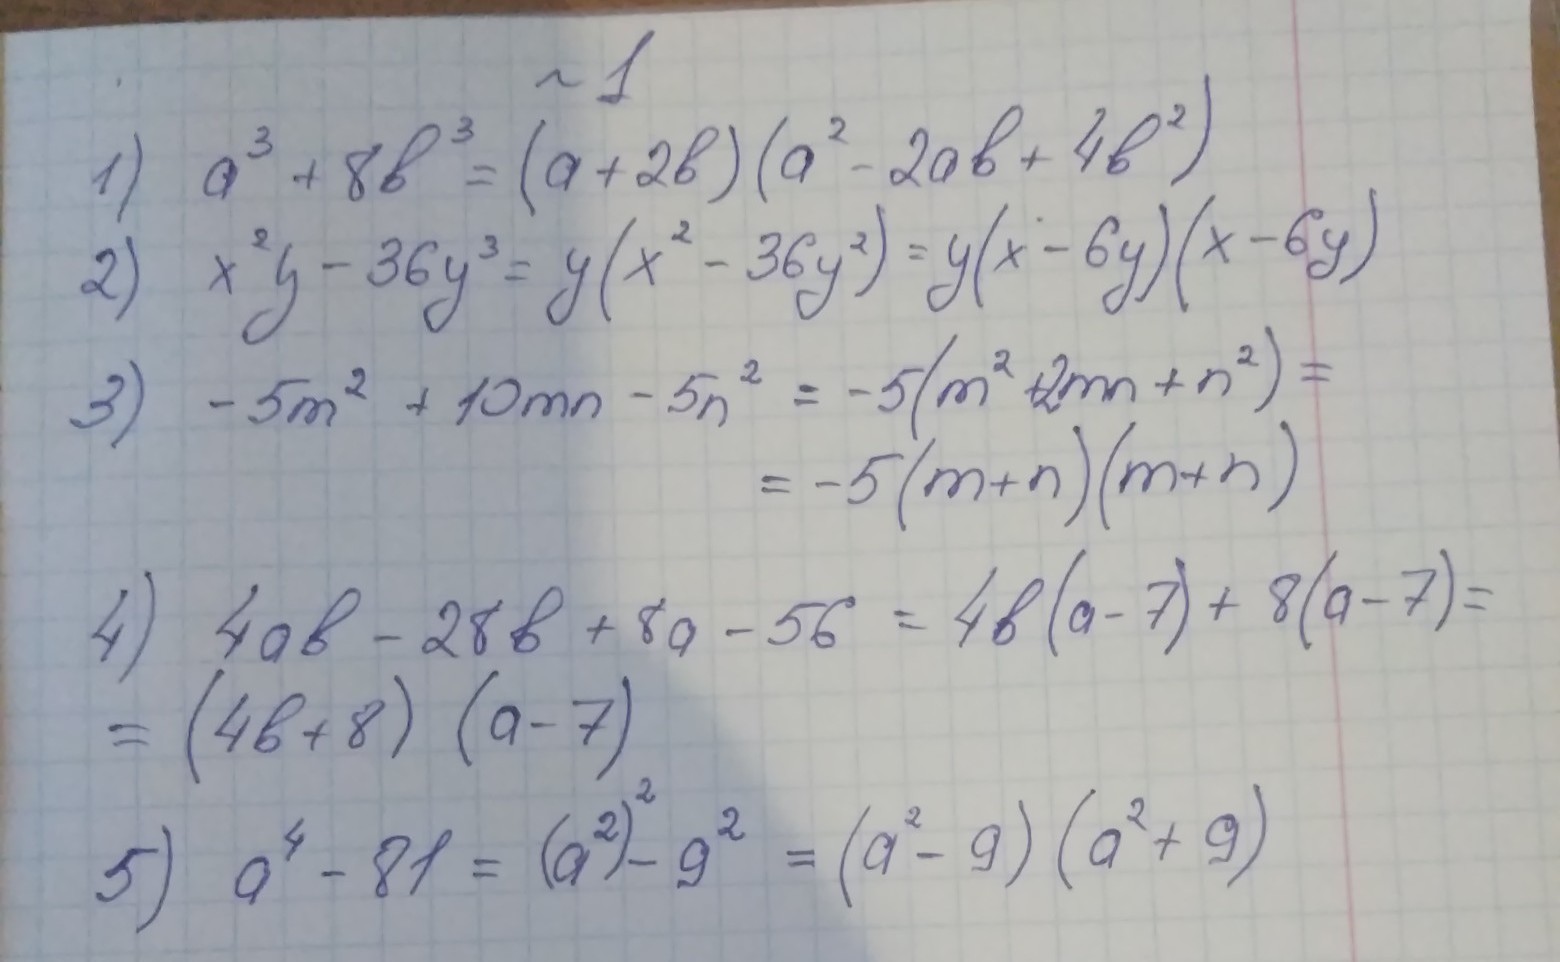 №1
1) a³ + 8b³ = (a + 2b)(a² - 2ab + 4b²)
2) x²y - 36y³ = y(x² - 36y²) = y(x - 6y)(x - 6y)
3) -5m² + 10mn - 5n² = -5(m² + 2mn + n²) =
= -5(m+n)(m+n)
4) 4ab - 28b + 8a - 56 = 4b(a - 7) + 8(a - 7) =
= (4b + 8) (a - 7)
5) a⁴ - 81 = (a²)² - 9² = (a² - 9) (a² + 9)